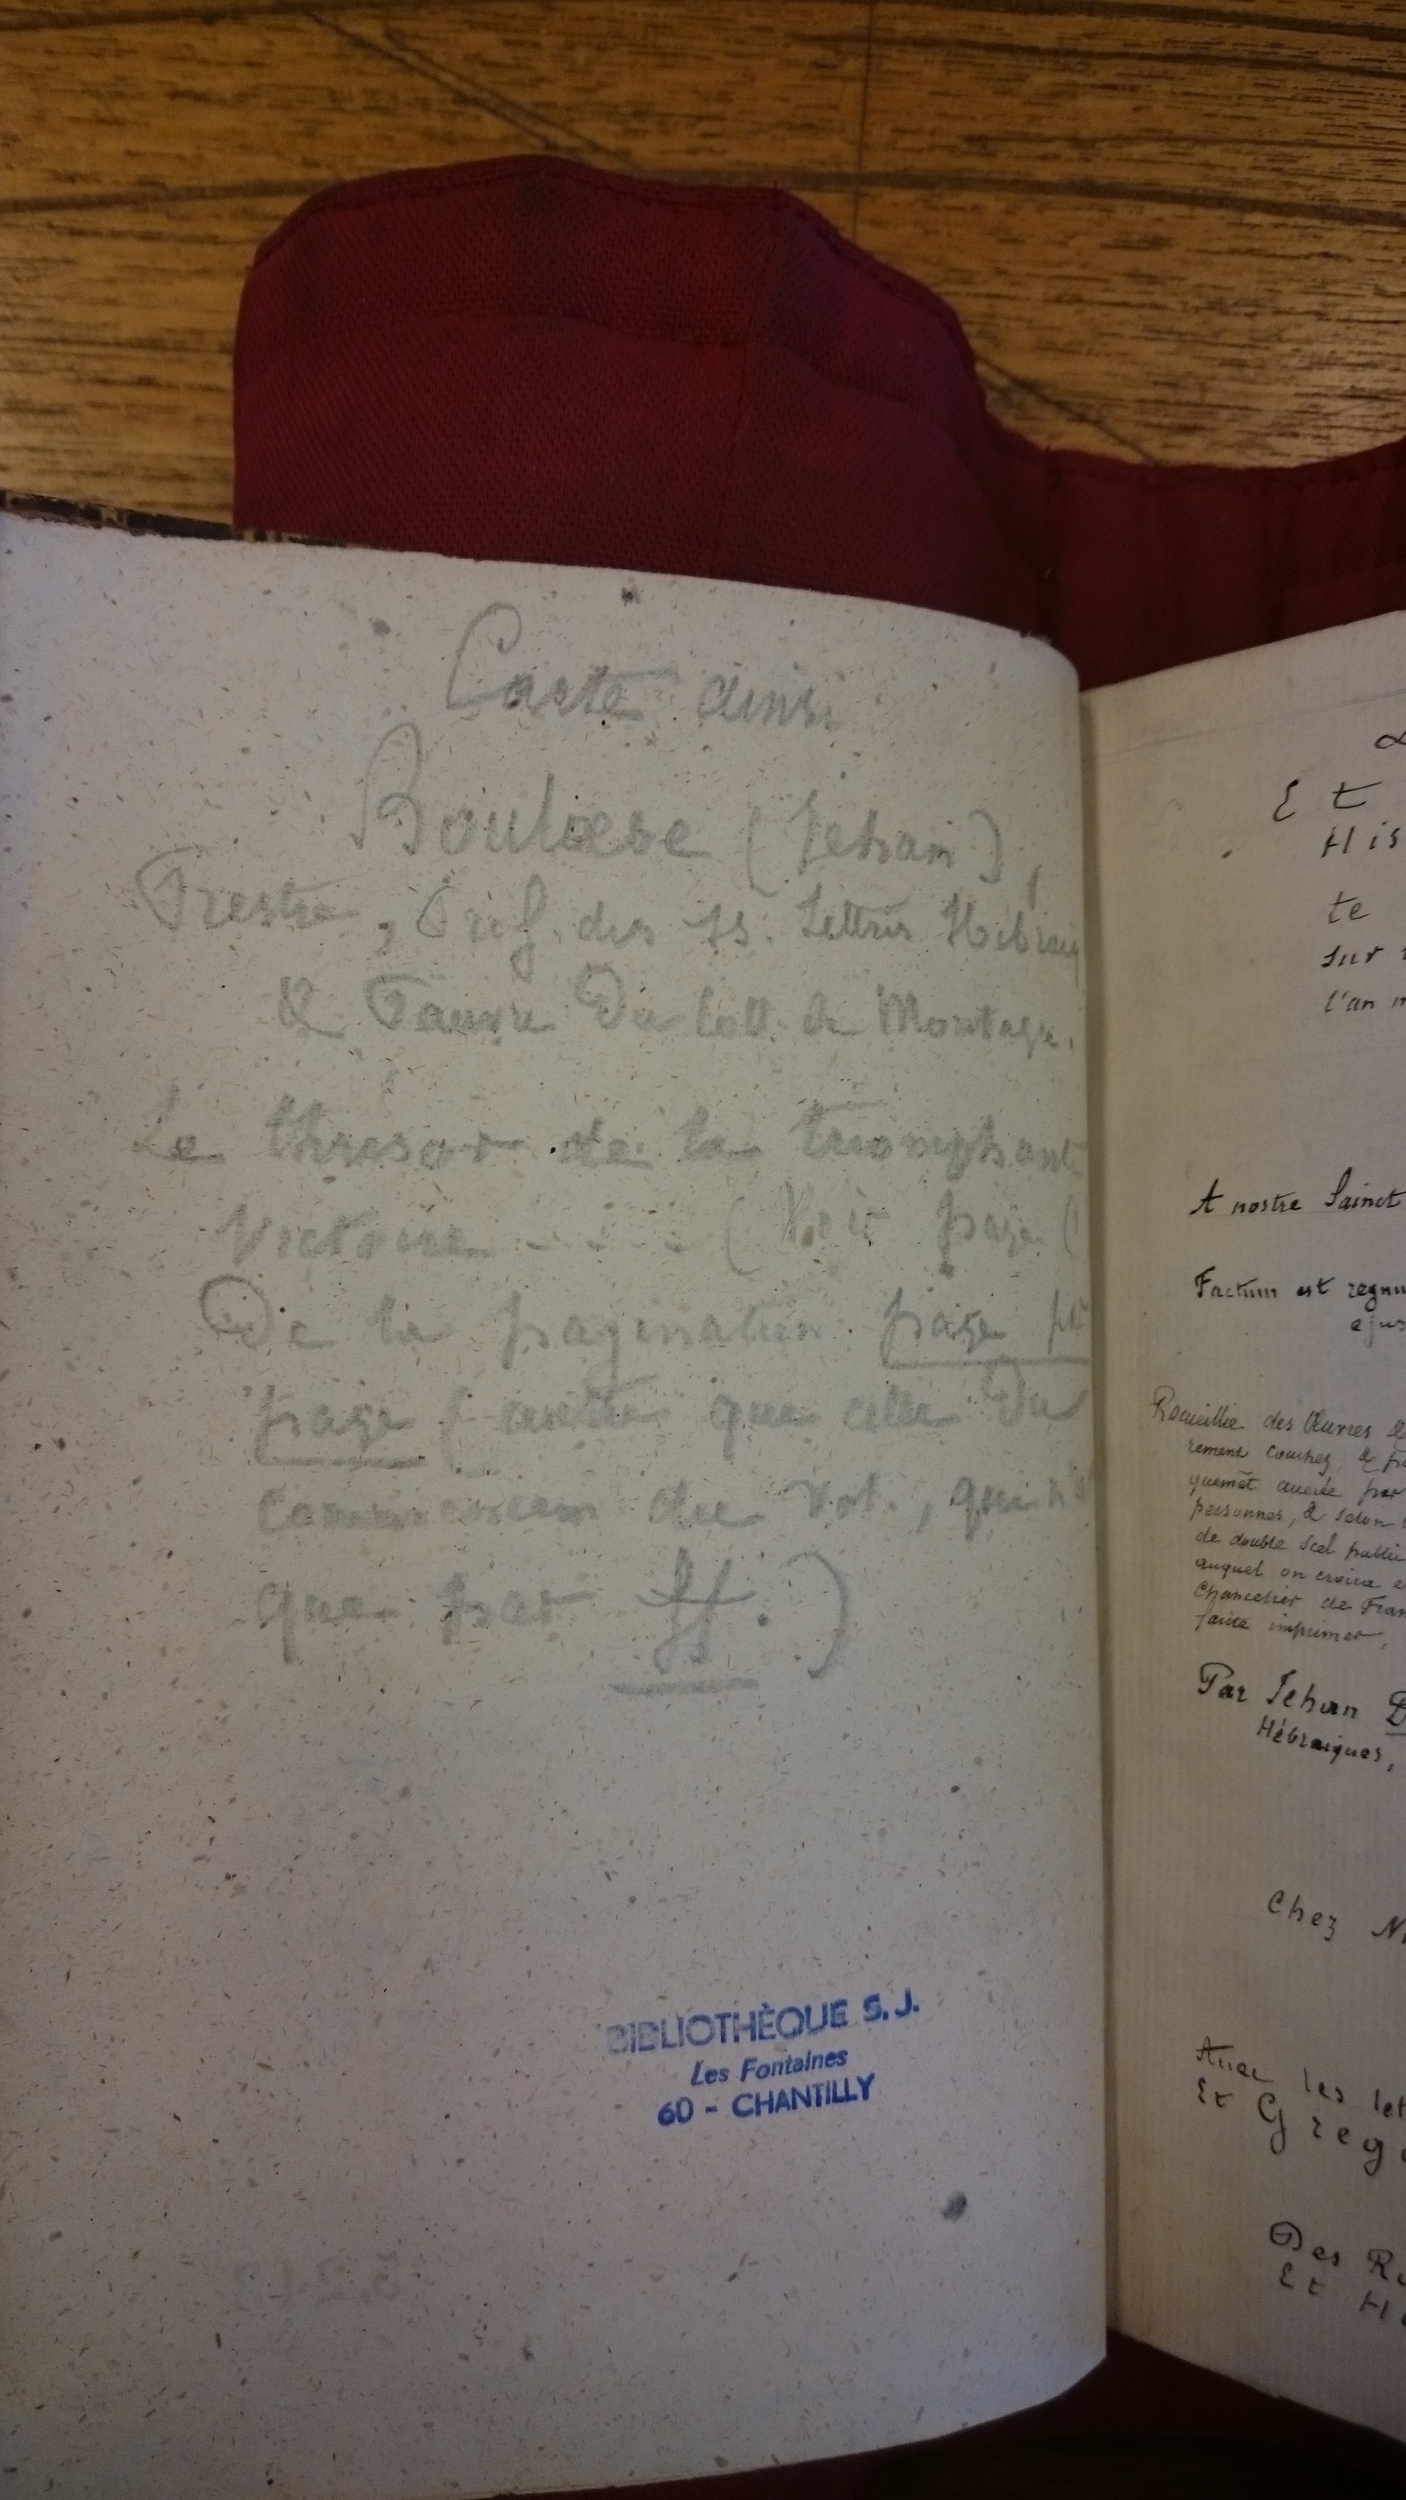 Carte ainsi
Boulæse (Jehan),
Prestre, Prof. des SS. Lettres Hebraiq
& Pauvre Du Coll. de Montagu.
Le thresor de la triomphant
Victoire - - - - ( Voir page (
De la pagination page p
page ( autre que celle Du
commencem du vol., qui n'
que par ff. )
BIBLIOTHÈQUE S. J.
Les Fontaines
60 - CHANTILLY
Et
His
te
sur
l'an m
A nostre Sainct
Factum est regnu
ejus
Recueillie des Œuvres &
rement couchez, & p
quemēt auerée par
personnes, & selon
de double Scel public
auquel on croira e
Chancelier de Fran
faite imprimer,
Par Iehan D
Hébraiques,
Chez N
Auec les let
Et Greg
Des R
Et H